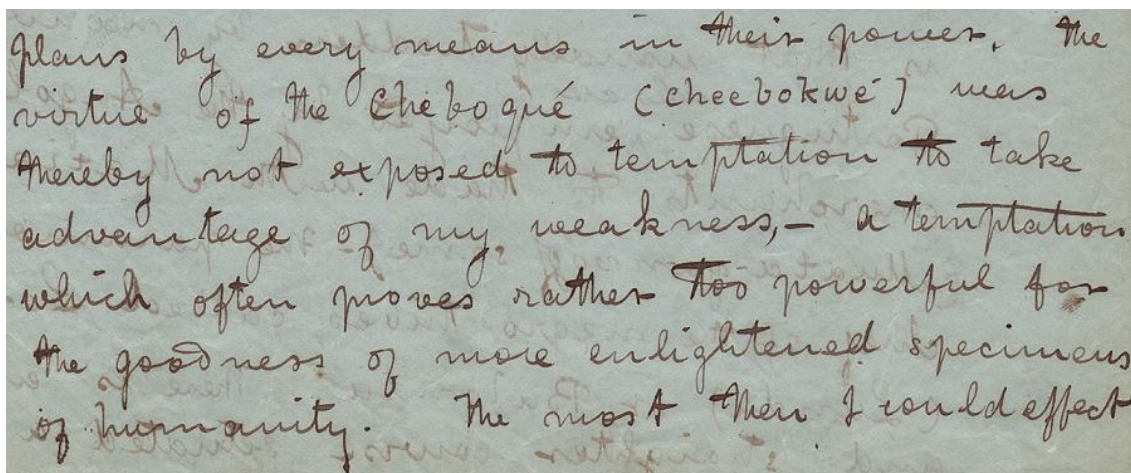 plans by every means in their power. The
virtue of the Cheboqué (cheebokwé) was
thereby not exposed to temptation to take
advantage of my weakness,- a temptation
which often proves rather too powerful for
the goodness of more enlightened specimens
of humanity. The most then I could effect